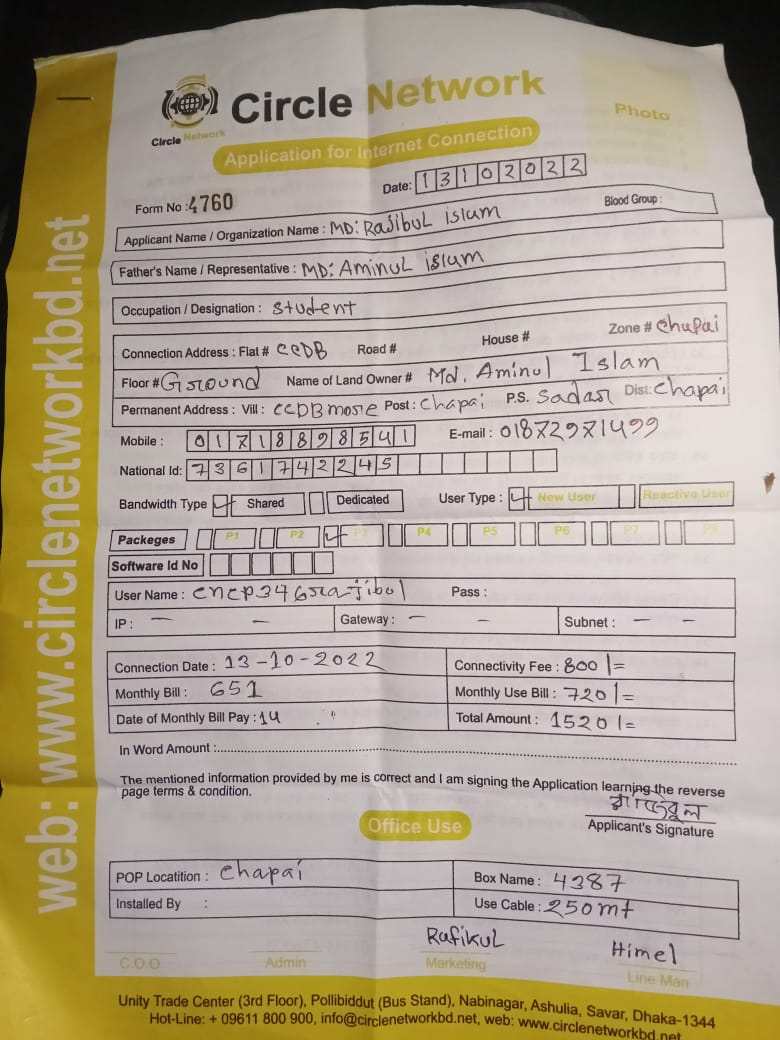 Circle Network
Circle Network
Photo
Application for Internet Connection
Date: 13102022
Form No :4760
Applicant Name / Organization Name : MD: Rajibul islam Blood Group :
Father's Name / Representative : MD: Aminul islam
Occupation / Designation : student
Connection Address : Flat # CCDB Road # House # Zone # Chapai
Floor # Ground Name of Land Owner # Md. Aminul Islam
Permanent Address : Vill : CCDB more Post : Chapai P.S. Sadar Dist: Chapai
Mobile : 01718898541 E-mail : 01872971499
National Id: 7361742245
Bandwidth Type Shared Dedicated User Type : New User Reactive User
Packeges P1 P2 P3 P4 P5 P6 P7 P8
Software Id No
User Name : cncp346rajibol Pass :
IP : — — Gateway : — — Subnet : — —
Connection Date : 13-10-2022 Connectivity Fee : 800/=
Monthly Bill : 651 Monthly Use Bill : 720/=
Date of Monthly Bill Pay : 14 Total Amount : 1520/=
In Word Amount :
The mentioned information provided by me is correct and I am signing the Application learning the reverse
page terms & condition.
Applicant's Signature
Office Use
POP Locatition : Chapai Box Name : 4387
Installed By : Use Cable : 250mt
Rafikul Himel
C.O.O Admin Marketing Line Man
Unity Trade Center (3rd Floor), Pollibiddut (Bus Stand), Nabinagar, Ashulia, Savar, Dhaka-1344
Hot-Line: + 09611 800 900, info@circlenetworkbd.net, web: www.circlenetworkbd.net
web: www.circlenetworkbd.net